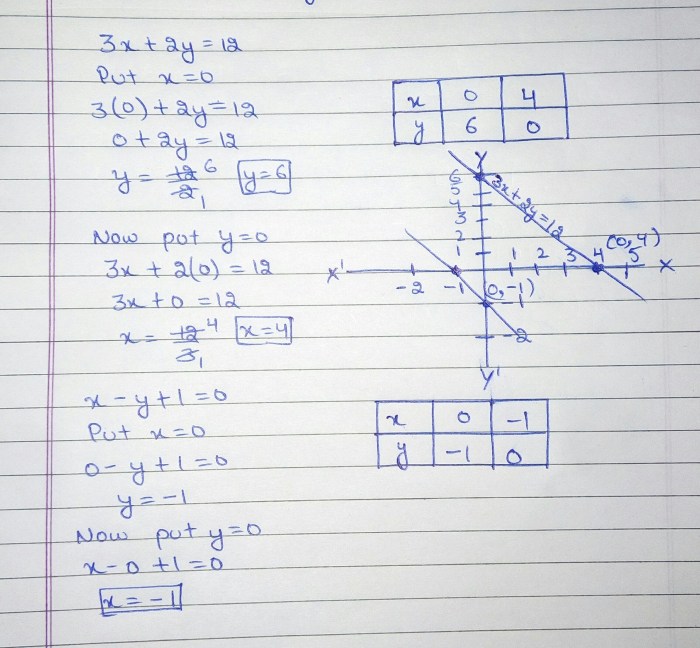 3x + 2y = 12
Put x = 0
3(0) + 2y = 12
0 + 2y = 12
y = 12 6 / 2 1 y = 6
Now put y = 0
3x + 2(0) = 12
3x + 0 = 12
x = 12 4 / 3 1 x = 4
x - y + 1 = 0
Put x = 0
0 - y + 1 = 0
y = -1
Now put y = 0
x - 0 + 1 = 0
x = -1
x 0 4
y 6 0
Y
6
5
4
3
2
1
3x + 2y = 12
(0, 4)
X' -2 -1 1 2 3 4 5 X
(0, -1)
-1
-2
Y'
x 0 -1
y -1 0